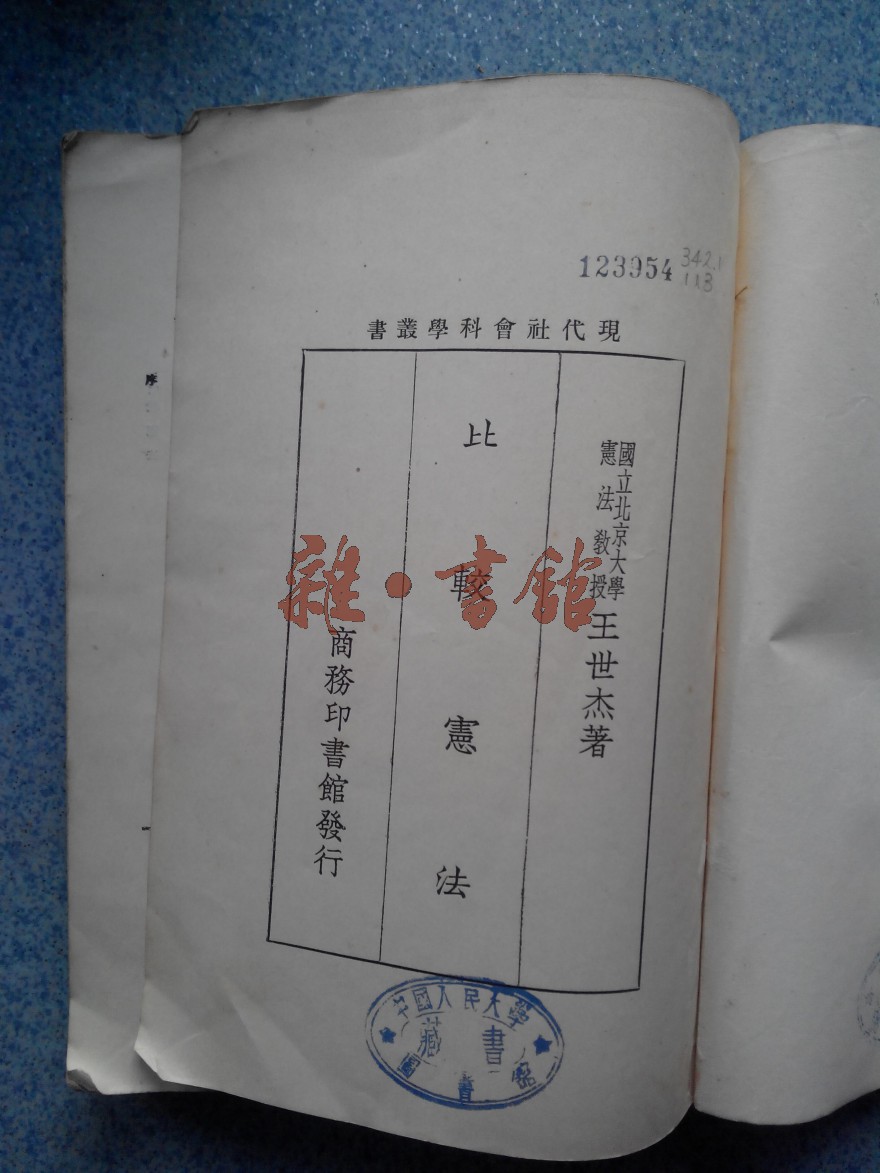 123954
342.1
113
現代社會科學叢書
國立北京大學
憲法教授
王世杰著
比較憲法
商務印書館發行
雜·書館
中國人民大學
藏書
圖書館
序